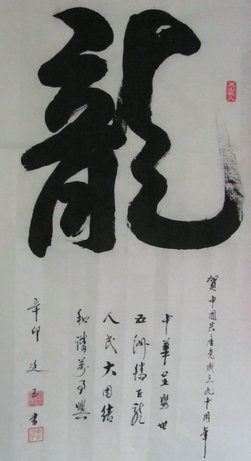 龍
賀中國共產党創立九十周年
中華呈盛世
五洲騰巨龍
人民大團結
和諧萬事興
辛卯 玉書